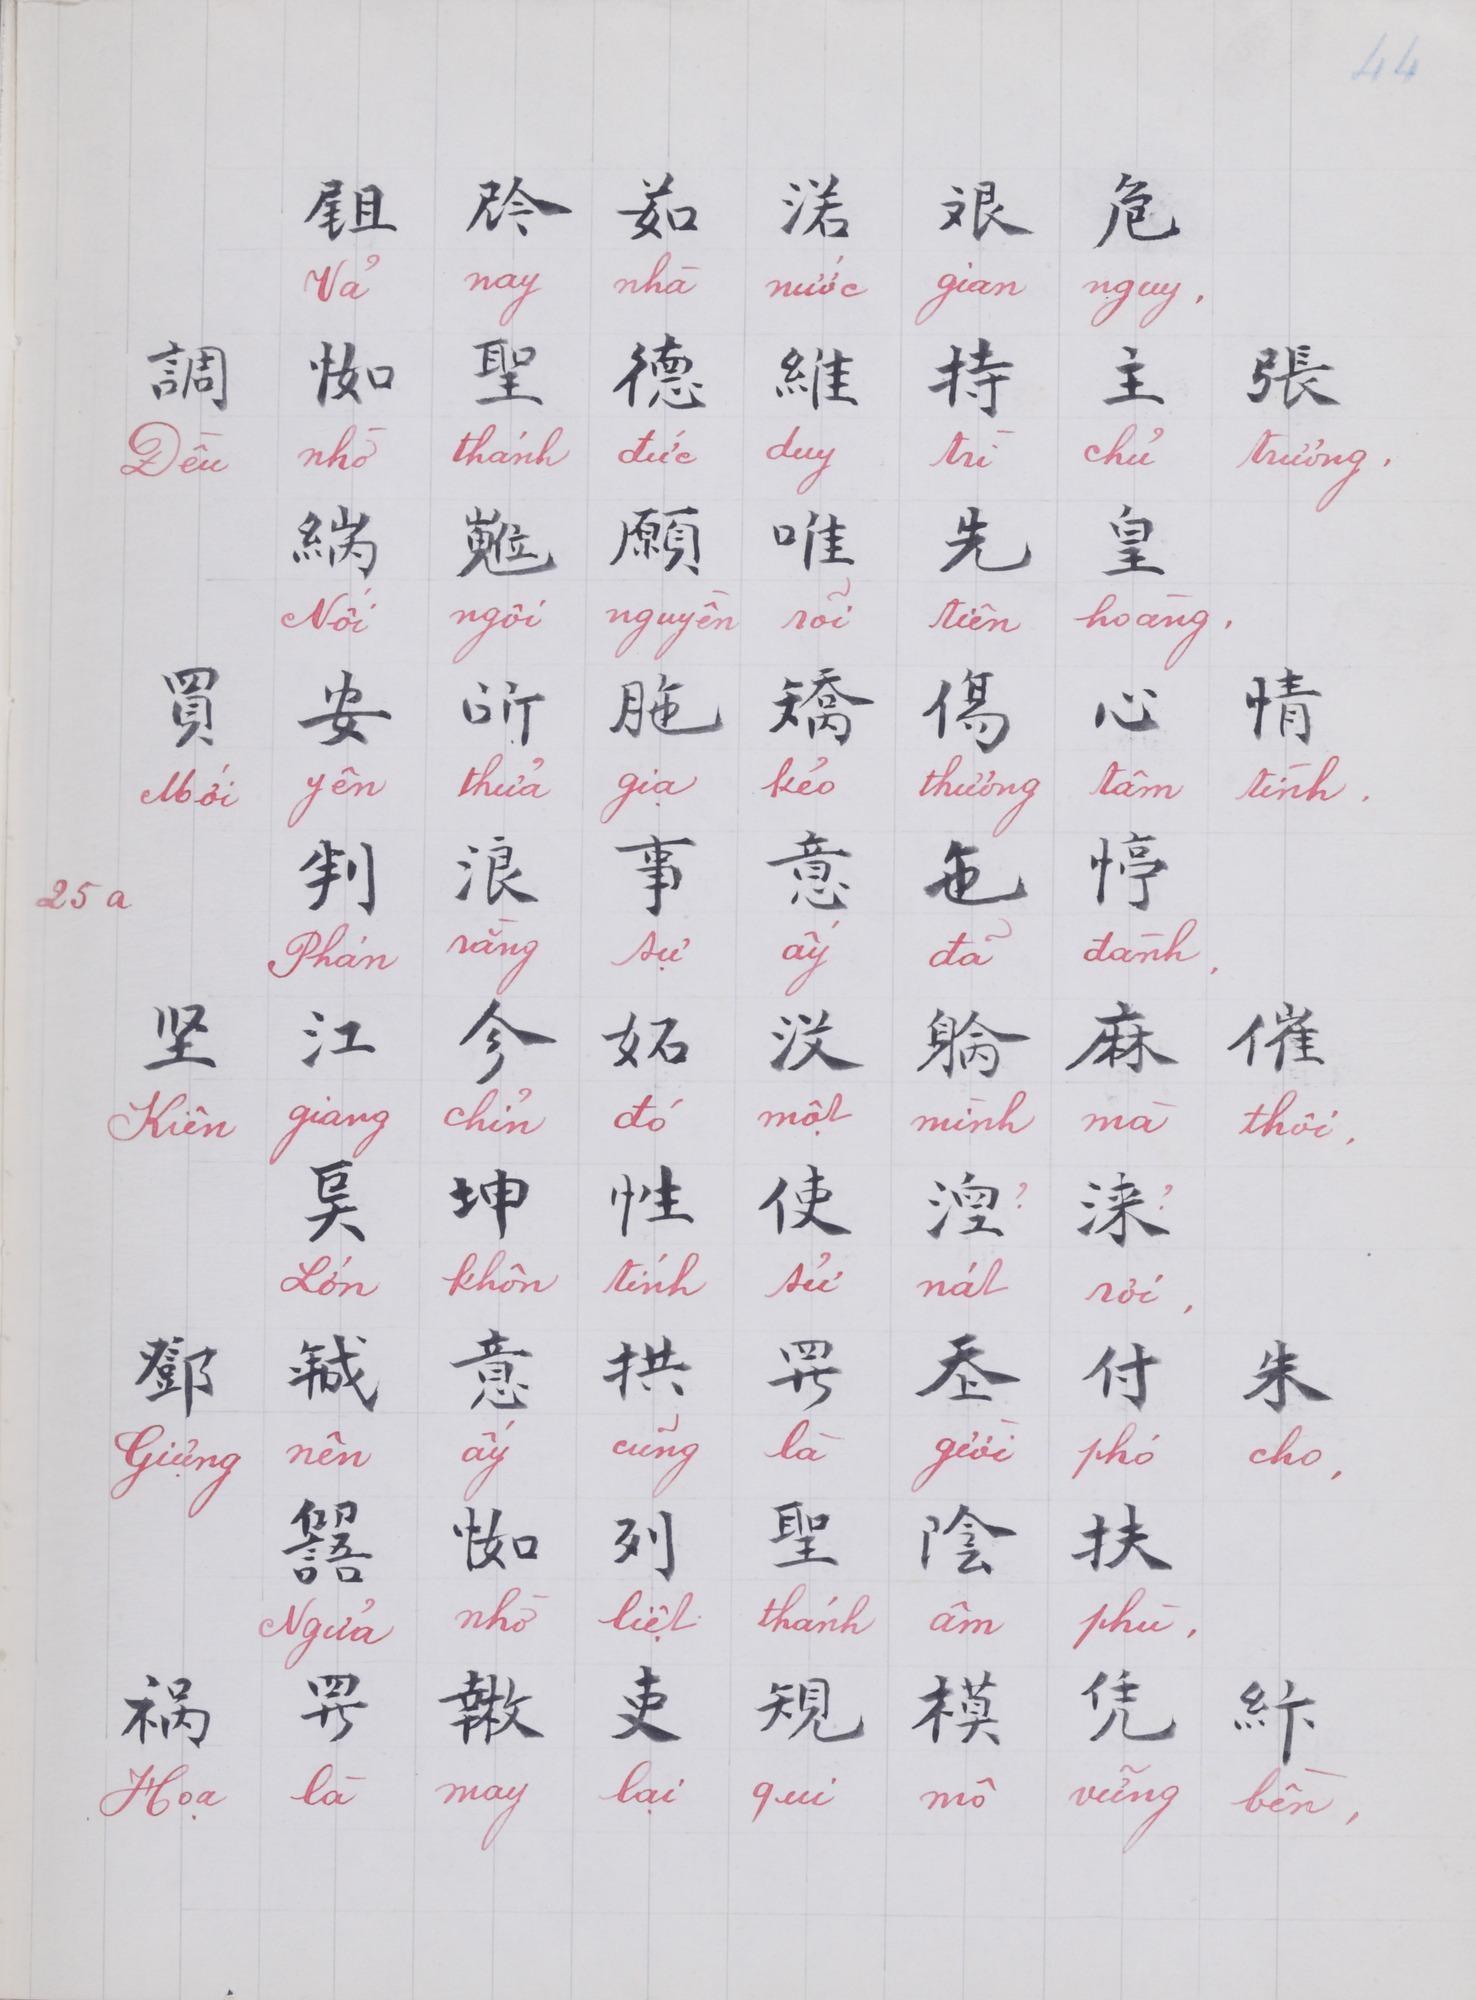 44
䎠 𫢩 茹 渃 艱 危
Vả nay nhà nước gian nguy,
調 𢘾 聖 德 維 持 主 張
Đều nhờ thánh đức duy trì chủ trương,
願 唯 先 皇
Nối ngôi nguyền rõi tiên hoàng,
買 安 所 矯 傷 心 情
Mới yên thửa giạ kẻo thương tâm tình.
判 浪 事 意 㐌 停
25a
Phán rằng sự ấy đã đành,
坚 江 妬 没 麻 催
Kiên giang chỉn đó một mình mà thôi,
坤 性 使 湼? 淶?
Lớn khôn tính sử nát rơi,
鄧 意 拱 𱺵 𡗶 付 朱
Giựng nên ấy cũng là giời phó cho,
𢘾 列 聖 陰 扶
Ngửa nhờ liệt thánh âm phù,
禍 𱺵 吏 規 模 凭 紆
Họa là may lại qui mô vững bền,